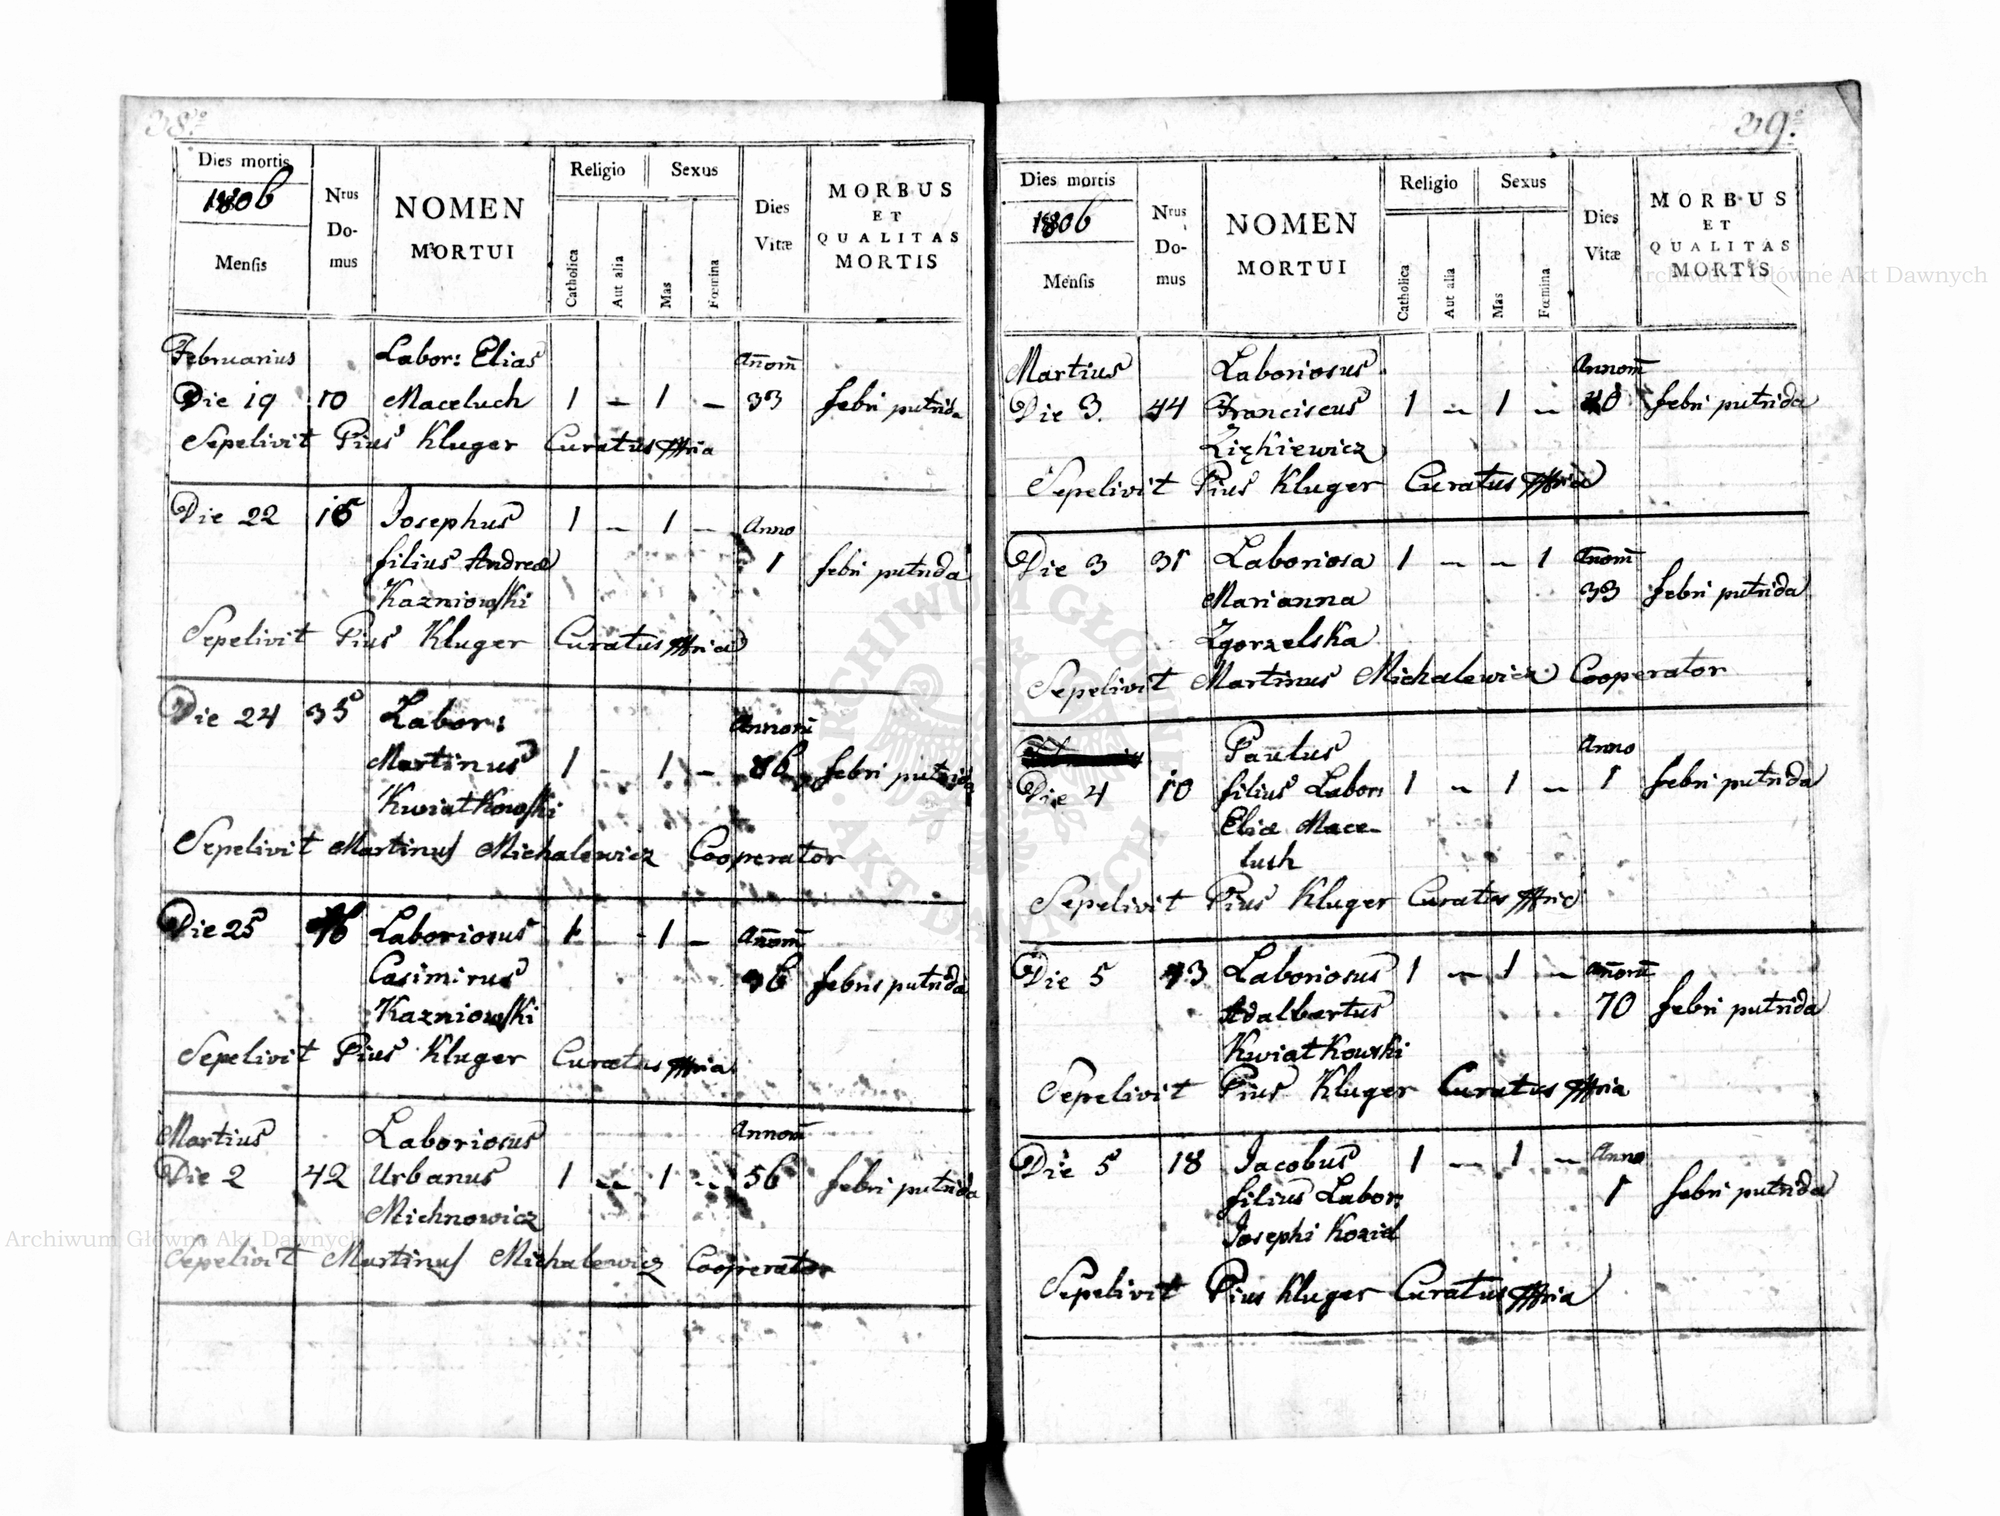 38.
Dies mortis
1806
Mensis
Nrus Do-mus
NOMEN
MORTUI
Religio
Catholica
Aut alia
Sexus
Mas
Fœmina
Dies
Vitæ
MORBUS
ET
QUALITAS
MORTIS
Februarius Labor: Elias Añom̃
Die 19 10 Maceluch 1 — 1 — 33 febri putrida
Sepelivit Pius Kluger Curatus
Die 22 Josephus 1 — 1 — Anno
filius Andreæ 1 febri putrida
Kazniowski
Sepelivit Pius Kluger Curatus
Die 24 35 Labor: Annorũ
Martinus 1 - 1 — febri putrida
Kwiatkowski
Sepelivit Martinus Michalewicz Cooperator
Die 25 Laboriosus 1 - 1 — Añom̃
Casimirus 36 febris putrida
Kazniowski
Sepelivit Pius Kluger Curatus
Martius Laboriosus Annom̃
Die 2 42 Urbanus 1 — 1 — 56 febri putrida
Michnowicz
Sepelivit Martinus Michalewicz Cooperator
39.
Dies mortis
1806
Mensis
Nrus
Do-
mus
NOMEN
MORTUI
Religio
Catholica
Aut alia
Sexus
Mas
Fœmina
Dies
Vitæ
MORBUS
ET
QUALITAS
MORTIS
Martius Laboriosus Annom̃
Die 3. 44 Franciscus 1 — 1 — 40 febri putrida
Ziękiewicz
Sepelivit Pius Kluger Curatus
Die 3 31 Laboriosa 1 — — 1 Añom̃
Marianna 33 febri putrida
Zgorzelska
Sepelivit Martinus Michalewicz Cooperator
Paulus Anno
Die 4 10 filius Labor: 1 — 1 — 1 febri putrida
Eliæ Mace-
luch
Sepelivit Pius Kluger Curatus
Die 5 43 Laboriosus 1 — 1 — Añorũ
Adalbertus 70 febri putrida
Kwiatkowski
Sepelivit Pius Kluger Curatus
Die 5 18 Jacobus 1 — 1 — Anno
filius Labor: 1 febri putrida
Josephi Koziel
Sepelivit Pius Kluger Curatus
Archiwum Główne Akt Dawnych
Archiwum Główne Akt Dawnych
ARCHIWUM GŁÓWNE AKT DAWNYCH